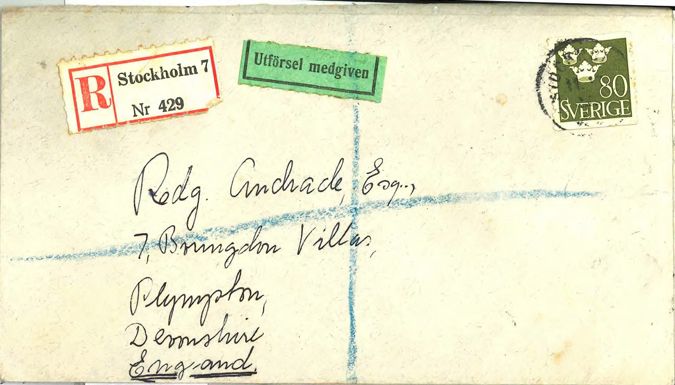 R Stockholm 7
Nr 429
Utförsel medgiven
80
SVERIGE
Rdg. Andrade, Esq.,
7, Villas,
Plympton,
Devonshire
England